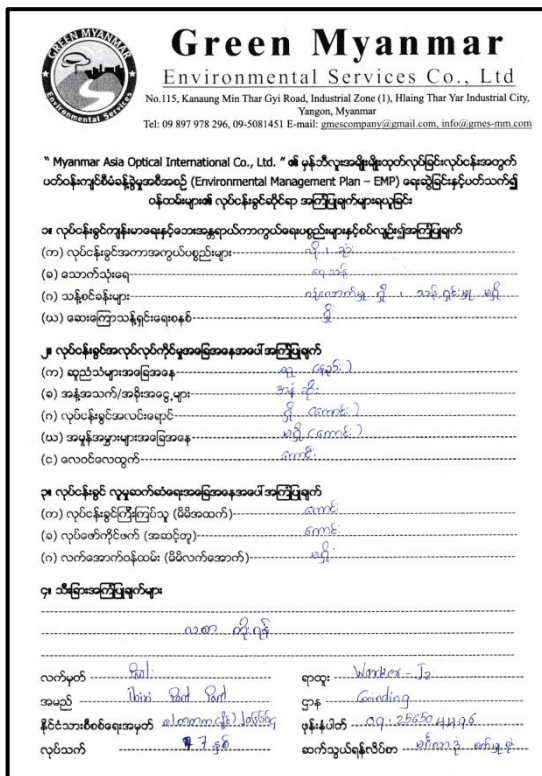 GREEN MYANMAR
Environmental Services
Green Myanmar
Environmental Services Co., Ltd
No.115, Kanaung Min Thar Gyi Road, Industrial Zone (1), Hlaing Thar Yar Industrial City,
Yangon, Myanmar
Tel: 09 897 978 296, 09-5081451 E-mail: gmescompany@gmail.com, info@gmes-mm.com
“ Myanmar Asia Optical International Co., Ltd. ” ၏ မှန်ဘီလူးအမျိုးမျိုးထုတ်လုပ်ခြင်းလုပ်ငန်းအတွက်
ပတ်ဝန်းကျင်စီမံခန့်ခွဲမှုအစီအစဉ် (Environmental Management Plan – EMP) ရေးဆွဲခြင်းနှင့်ပတ်သက်၍
ဝန်ထမ်းများ၏ လုပ်ငန်းခွင်ဆိုင်ရာ အကြံပြုချက်များရယူခြင်း
၁။ လုပ်ငန်းခွင်ကျန်းမာရေးနှင့်ဘေးအန္တရာယ်ကာကွယ်ရေးပစ္စည်းများနှင့်စပ်လျဉ်း၍အကြံပြုချက်
(က) လုပ်ငန်းခွင်အကာအကွယ်ပစ္စည်းများ
(ခ) သောက်သုံးရေ ရေသန့်
(ဂ) သန့်စင်ခန်းများ ရှိ ၊ သန့်ရှင်းမှု မရှိ
(ဃ) ဆေးကြောသန့်ရှင်းရေးစနစ် ရှိ
၂။ လုပ်ငန်းခွင်အလုပ်လုပ်ကိုင်မှုအခြေအနေအပေါ်အကြံပြုချက်
(က) ဆူညံသံများအခြေအနေ
(ခ) အနံ့အသက်/အခိုးအငွေ့များ အနံ့ဆိုး
(ဂ) လုပ်ငန်းခွင်အလင်းရောင် ရှိ (ကောင်း)
(ဃ) အမှုန်အမွှားများအခြေအနေ မရှိ (ကောင်း)
(င) လေဝင်လေထွက် ကောင်း
၃။ လုပ်ငန်းခွင် လူမှုဆက်ဆံရေးအခြေအနေအပေါ်အကြံပြုချက်
(က) လုပ်ငန်းခွင်ကြီးကြပ်သူ (မိမိအထက်) ကောင်း
(ခ) လုပ်ဖော်ကိုင်ဖက် (အဆင့်တူ) ကောင်း
(ဂ) လက်အောက်ဝန်ထမ်း (မိမိလက်အောက်) မရှိ
၄။ သီးခြားအကြံပြုချက်များ
လစာ တိုးရန်
လက်မှတ် ရာထူး Worker - J2
အမည် Thiri ဌာန Grinding
နိုင်ငံသားစိစစ်ရေးအမှတ် ဖုန်းနံပါတ် 09-25650 4496
လုပ်သက် 7 နှစ် ဆက်သွယ်ရန်လိပ်စာ